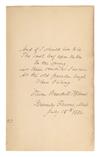 And if I should live to be
The last leaf upon the tree
In the spring
Let them smile as I do now
At the old forsaken bough
Where I cling.
Oliver Wendell Holmes
Beverly Farms, Mass.
July